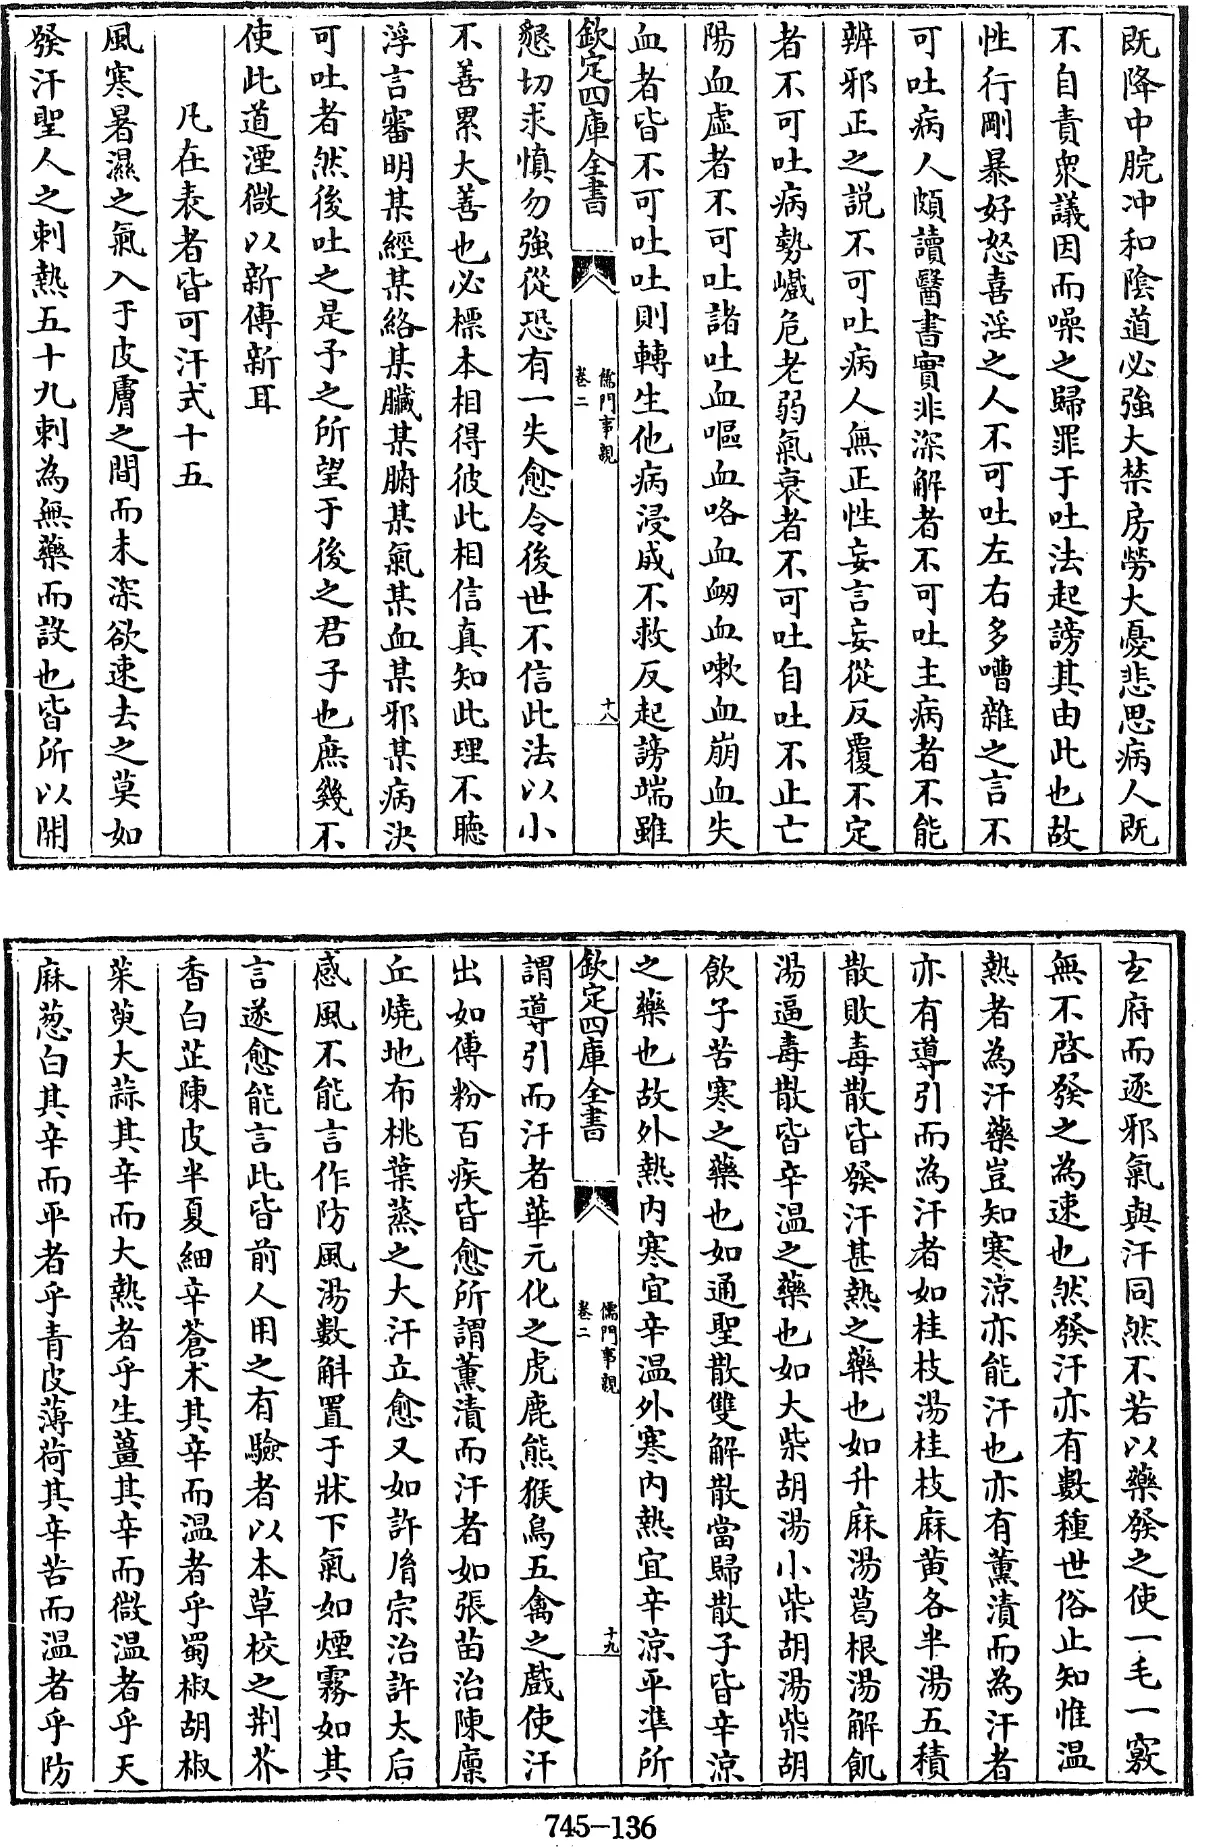 既降中脘冲和陰道必強大禁房勞大憂悲思病人既
不自責衆議因而噪之歸罪于吐法起謗其由此也故
性行剛暴好怒喜淫之人不可吐左右多嘈雜之言不
可吐病人頗讀醫書實非深解者不可吐主病者不能
辨邪正之説不可吐病人無正性妄言妄從反覆不定
者不可吐病勢巇危老弱氣衰者不可吐自吐不止亡
陽血虛者不可吐諸吐血嘔血咯血衂血嗽血崩血失
血者皆不可吐吐則轉生他病浸成不救反起謗端雖
欽定四庫全書
儒門事親
卷二
十八
懇切求慎勿強從恐有一失愈令後世不信此法以小
不善累大善也必標本相得彼此相信真知此理不聽
浮言審明某經某絡某臟某腑某氣某血某邪某病決
可吐者然後吐之是予之所望于後之君子也庶幾不
使此道湮微以新傳新耳
凡在表者皆可汗式十五
風寒暑濕之氣入于皮膚之間而未深欲速去之莫如
發汗聖人之刺熱五十九刺為無藥而設也皆所以開
玄府而逐邪氣與汗同然不若以藥發之使一毛一竅
無不啓發之為速也然發汗亦有數種世俗止知惟温
熱者為汗藥豈知寒涼亦能汗也亦有薫漬而為汗者
亦有導引而為汗者如桂枝湯桂枝麻黄各半湯五積
散敗毒散皆發汗甚熱之藥也如升麻湯葛根湯解飢
湯逼毒散皆辛温之藥也如大柴胡湯小柴胡湯柴胡
飲子苦寒之藥也如通聖散雙解散當歸散子皆辛涼
之藥也故外熱内寒宜辛温外寒内熱宜辛涼平準所
欽定四庫全書
儒門事親
卷二
十九
謂導引而汗者華元化之虎鹿熊猴鳥五禽之戲使汗
出如傅粉百疾皆愈所謂薫漬而汗者如張苗治陳廩
丘燒地布桃葉蒸之大汗立愈又如許𦙍宗治許太后
感風不能言作防風湯數斛置于牀下氣如煙霧如其
言遂愈能言此皆前人用之有驗者以本草校之荆芥
香白芷陳皮半夏細辛蒼术其辛而温者乎蜀椒胡椒
茱萸大蒜其辛而大熱者乎生薑其辛而微温者乎天
麻葱白其辛而平者乎青皮薄荷其辛苦而温者乎防
745-136